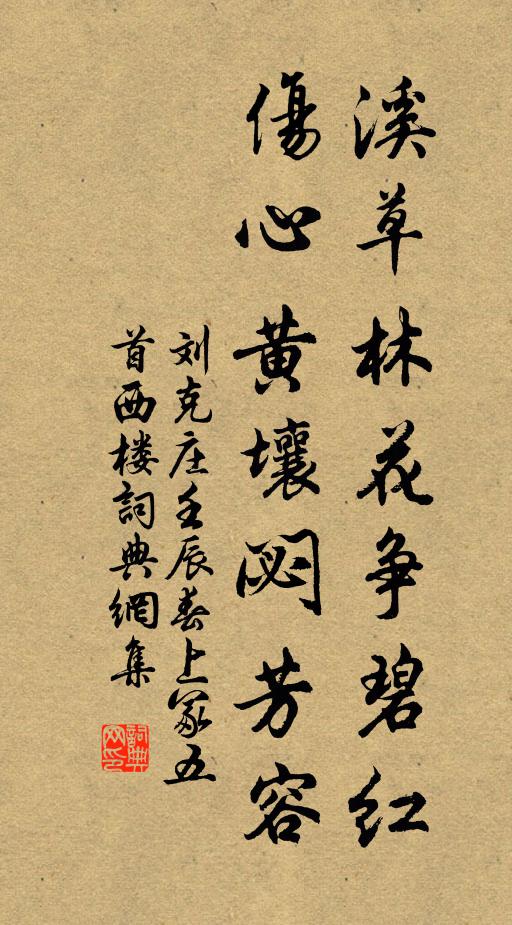 溪草林花争碧红
傷心黄壤閟芳容
刘克庄壬辰春上冢五
首西楼詞典網集
詞典网印